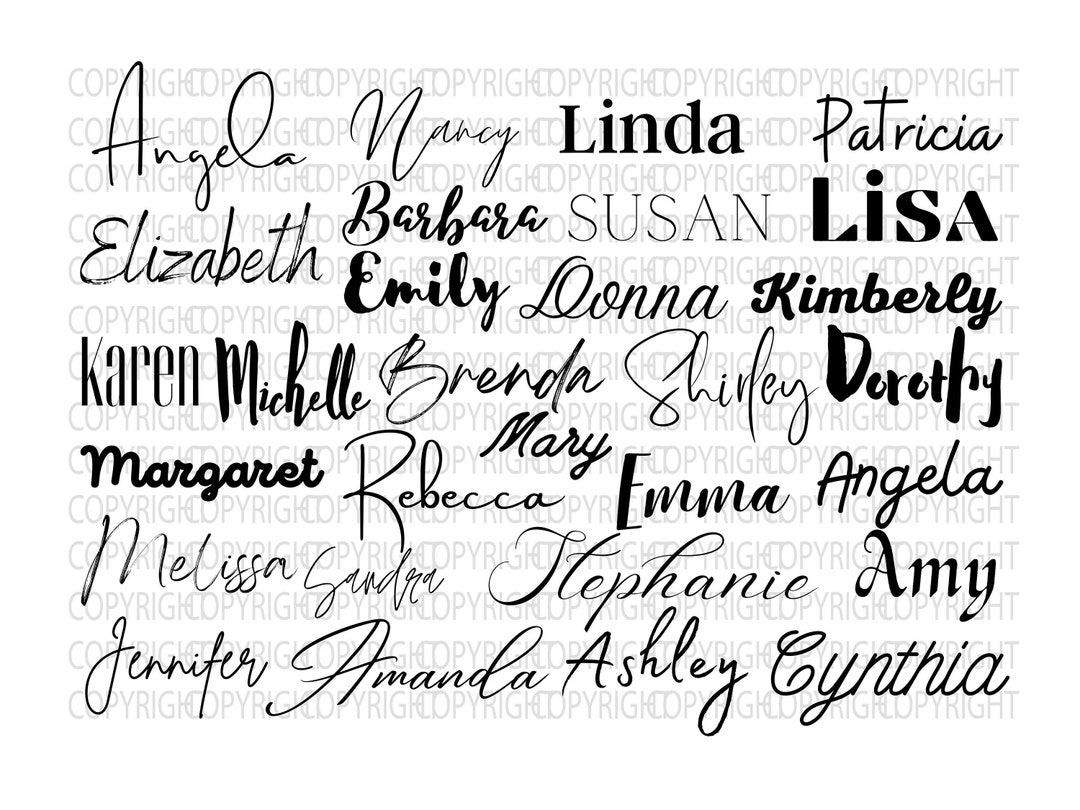 Angela Nancy Linda Patricia
Elizabeth Barbara SUSAN LiSA
Emily Donna Kimberly
Karen Michelle Brenda Shirley Dorothy
Margaret Rebecca Mary Emma Angela
Melissa Sandra Stephanie Amy
Jennifer Amanda Ashley Cynthia
COPYRIGHT COPYRIGHT COPYRIGHT COPYRIGHT COPYRIGHT COPYRIGHT COPYRIGHT COPYRIGHT